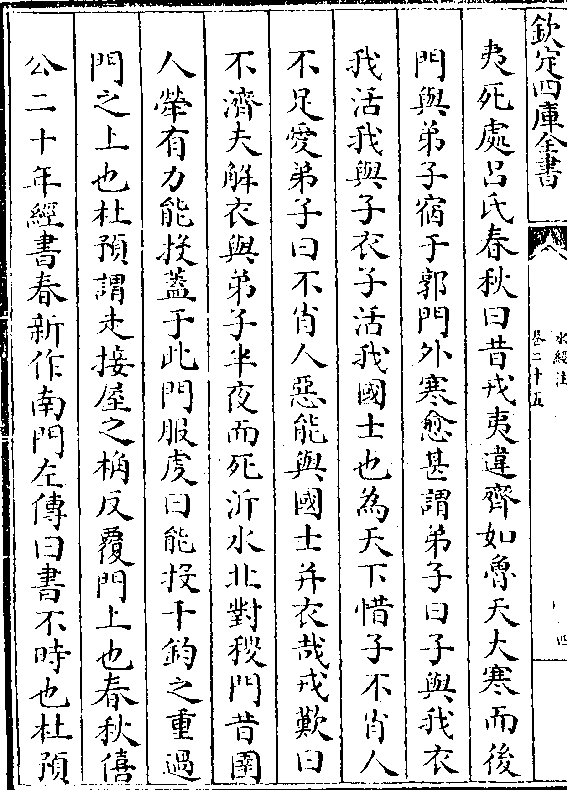 欽定四庫全書
水經注
卷二十五
四
夷死處呂氏春秋曰昔戎夷違齊如魯天大寒而後
門與弟子宿于郭門外寒愈甚謂弟子曰子與我衣
我活我與子衣子活我國士也為天下惜子不肖人
不足愛弟子曰不肖人惡能與國士并衣哉戎歎曰
不濟夫解衣與弟子半夜而死沂水北對稷門昔圉
人犖有力能投蓋于此門服虔曰能投千鈞之重過
門之上也杜預謂走接屋之桷反覆門上也春秋僖
公二十年經書春新作南門左傳曰書不時也杜預